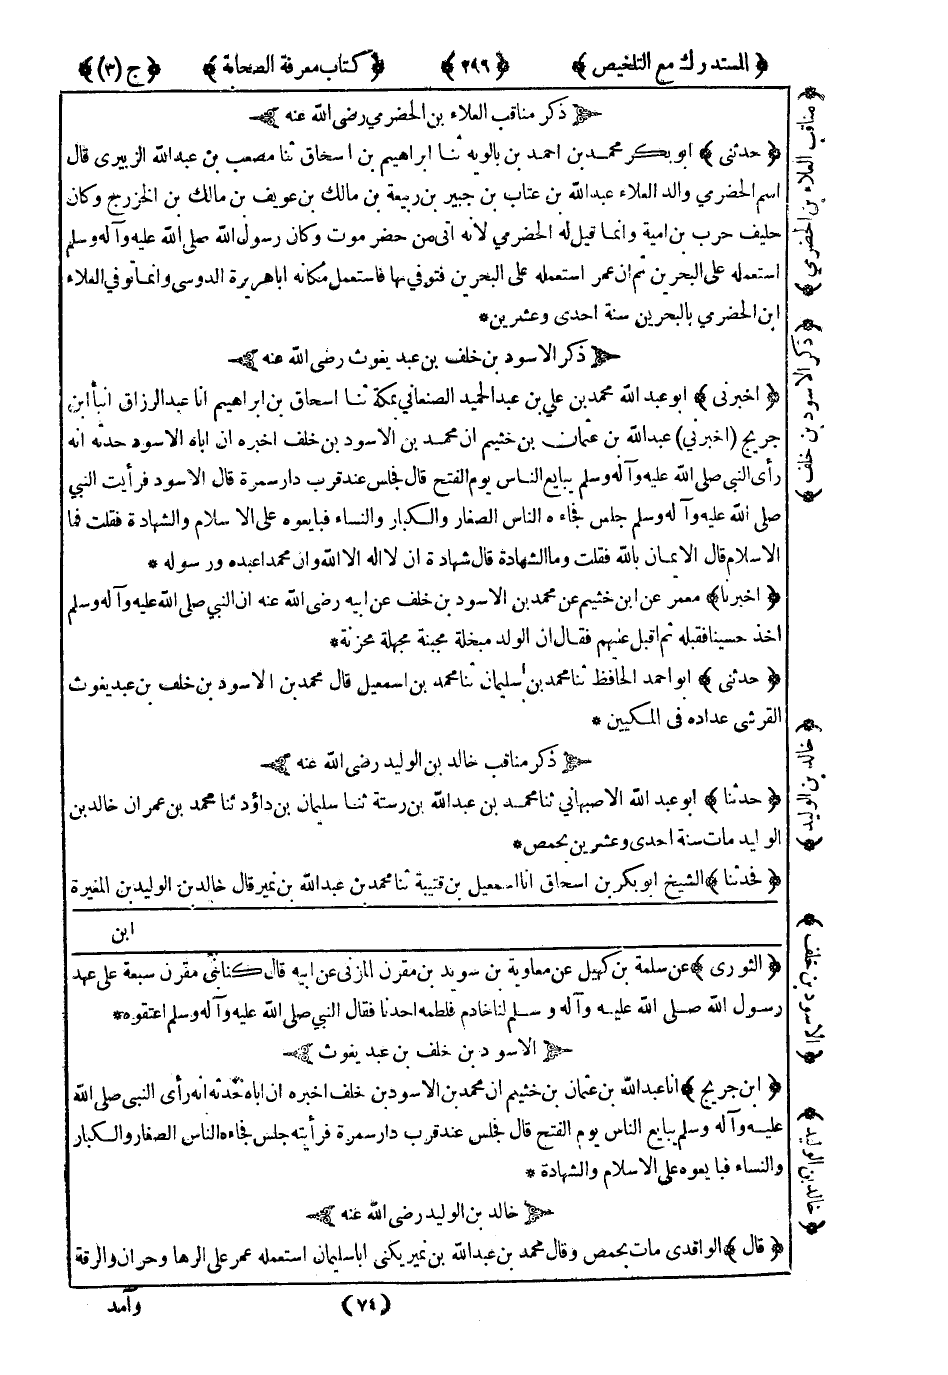 ﴿ المستدرك مع التلخيص ﴾ ﴿ ٢٩٦ ﴾ ﴿ كتاب معرفة الصحابة ﴾ ﴿ ج (٣) ﴾
ذكر مناقب العلاء بن الحضرمي رضى الله عنه
﴿ حدثنى ﴾ ابوبكر محمد بن احمد بن بالويه ثنا ابراهيم بن اسحاق ثنا مصعب بن عبدالله الزبيرى قال
اسم الحضرمي والد العلاء عبدالله بن عتاب بن جبير بن ربيعة بن مالك بن عويف بن مالك بن الخزرج وكان
حليف حرب بن امية وانما قيل له الحضرمي لانه اتى من حضر موت وكان رسول الله صلى الله عليه وآله وسلم
استعمله على البحرين ثم ان عمر استعمله على البحرين فتوفي بها فاستعمل مكانه اباهريرة الدوسى وانما توفي العلاء
ابن الحضرمي بالبحرين سنة احدى وعشرين*
ذكر الاسود بن خلف بن عبد يغوث رضى الله عنه
﴿ اخبرنى ﴾ ابوعبد الله محمد بن علي بن عبد الحميد الصنعاني بمكة ثنا اسحاق بن ابراهيم انا عبد الرزاق انبأ ابن
جريج (اخبرني) عبدالله بن عثمان بن خثيم ان محمد بن الاسود بن خلف اخبره ان اباه الاسود حدثه انه
رأى النبي صلى الله عليه وآله وسلم يبايع الناس يوم الفتح قال فجلس عند قرب دار سمرة قال الاسود فرأيت النبي
صلى الله عليه وآله وسلم جلس فجاءه الناس الصغار والكبار والنساء فبايعوه على الاسلام والشهادة فقلت فما
الاسلام قال الايمان بالله فقلت وما الشهادة قال شهادة ان لا اله الا الله وان محمدا عبده ورسوله *
﴿ اخبرنا ﴾ معمر عن ابن خثيم عن محمد بن الاسود بن خلف عن ابيه رضى الله عنه ان النبي صلى الله عليه وآله وسلم
اخذ حسينا فقبله ثم اقبل عنهم فقال ان الولد مبخلة مجبنة مجهلة محزنة*
﴿ حدثنى ﴾ ابو احمد الحافظ ثنا محمد بن سليمان ثنا محمد بن اسمعيل قال محمد بن الاسود بن خلف بن عبد يغوث
القرشى عداده فى المكيين *
ذكر مناقب خالد بن الوليد رضى الله عنه
﴿ حدثنا ﴾ ابو عبد الله الاصبهاني ثنا محمد بن عبدالله بن رستة ثنا سليمان بن داؤد ثنا محمد بن عمران خالد بن
الوليد مات سنة احدى وعشرين بحمص*
﴿ فحدثنا ﴾ الشيخ ابوبكر بن اسحاق انا اسمعيل بن قتيبة ثنا محمد بن عبدالله بن نمير قال خالد بن الوليد بن المغيرة
ابن
﴿ الثورى ﴾ عن سلمة بن كهيل عن معاوية بن سويد بن مقرن المزنى عن ابيه قال كنا بنى مقرن سبعة على عهد
رسول الله صلى الله عليه وآله وسلم لنا خادم فلطمه احدنا فقال النبي صلى الله عليه وآله وسلم اعتقوه*
الاسود بن خلف بن عبد يغوث
﴿ ابن جريج ﴾ انا عبد الله بن عثمان بن خثيم ان محمد بن الاسود بن خلف اخبره ان اباه حدثه انه رأى النبي صلى الله
عليه وآله وسلم يبايع الناس يوم الفتح قال فجلس عند قرب دار سمرة فرأيته جلس فجاءه الناس الصغار والكبار
والنساء فبايعوه على الاسلام والشهادة *
خالد بن الوليد رضى الله عنه
﴿ قال ﴾ الواقدى مات بحمص وقال محمد بن عبدالله بن نمير يكنى اباسليمان استعمله عمر على الرها وحران والرقة
(٧٤)
وآمد
﴿ مناقب العلاء بن الحضرمي ﴾
﴿ ذكر الاسود بن خلف ﴾
﴿ خالد بن الوليد ﴾
﴿ الاسود بن خلف ﴾
﴿ خالد بن الوليد ﴾